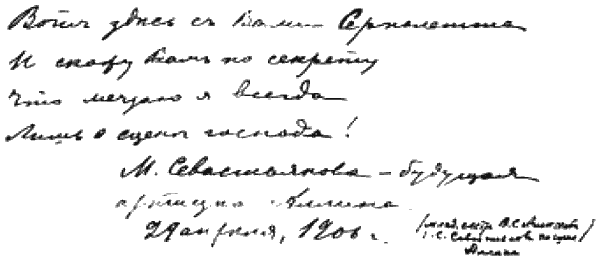 Вотъ здѣсь съ Вами Серполетта
И скажу Вамъ по секрету
Что мечтаю я всегда
Лишь о сценѣ господа!
М. Севастьянова – будущая
артистка Алмина
29 апреля, 1906 г.